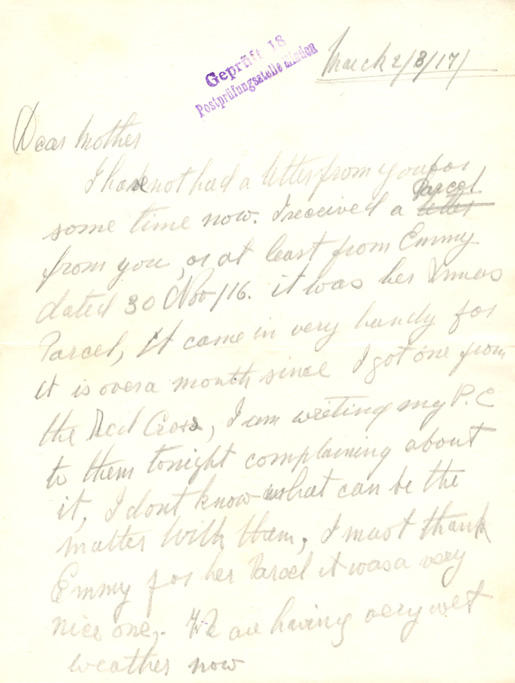 Geprüft 18
Postprüfungsstelle Minden
March 2/3/17/
Dear Mother
I have not had a letter from you for
some time now. I received a letter Parcel
from you, or at least from Emmy
dated 30 Nov/16. it was her Xmas
Parcel, It came in very handy for
it is over a month since I got one from
the Red Cross, I am writing my P.C
to them tonight complaining about
it, I dont know what can be the
matter with them, I must thank
Emmy for her Parcel it was a very
nice one,. We are having very wet
weather now